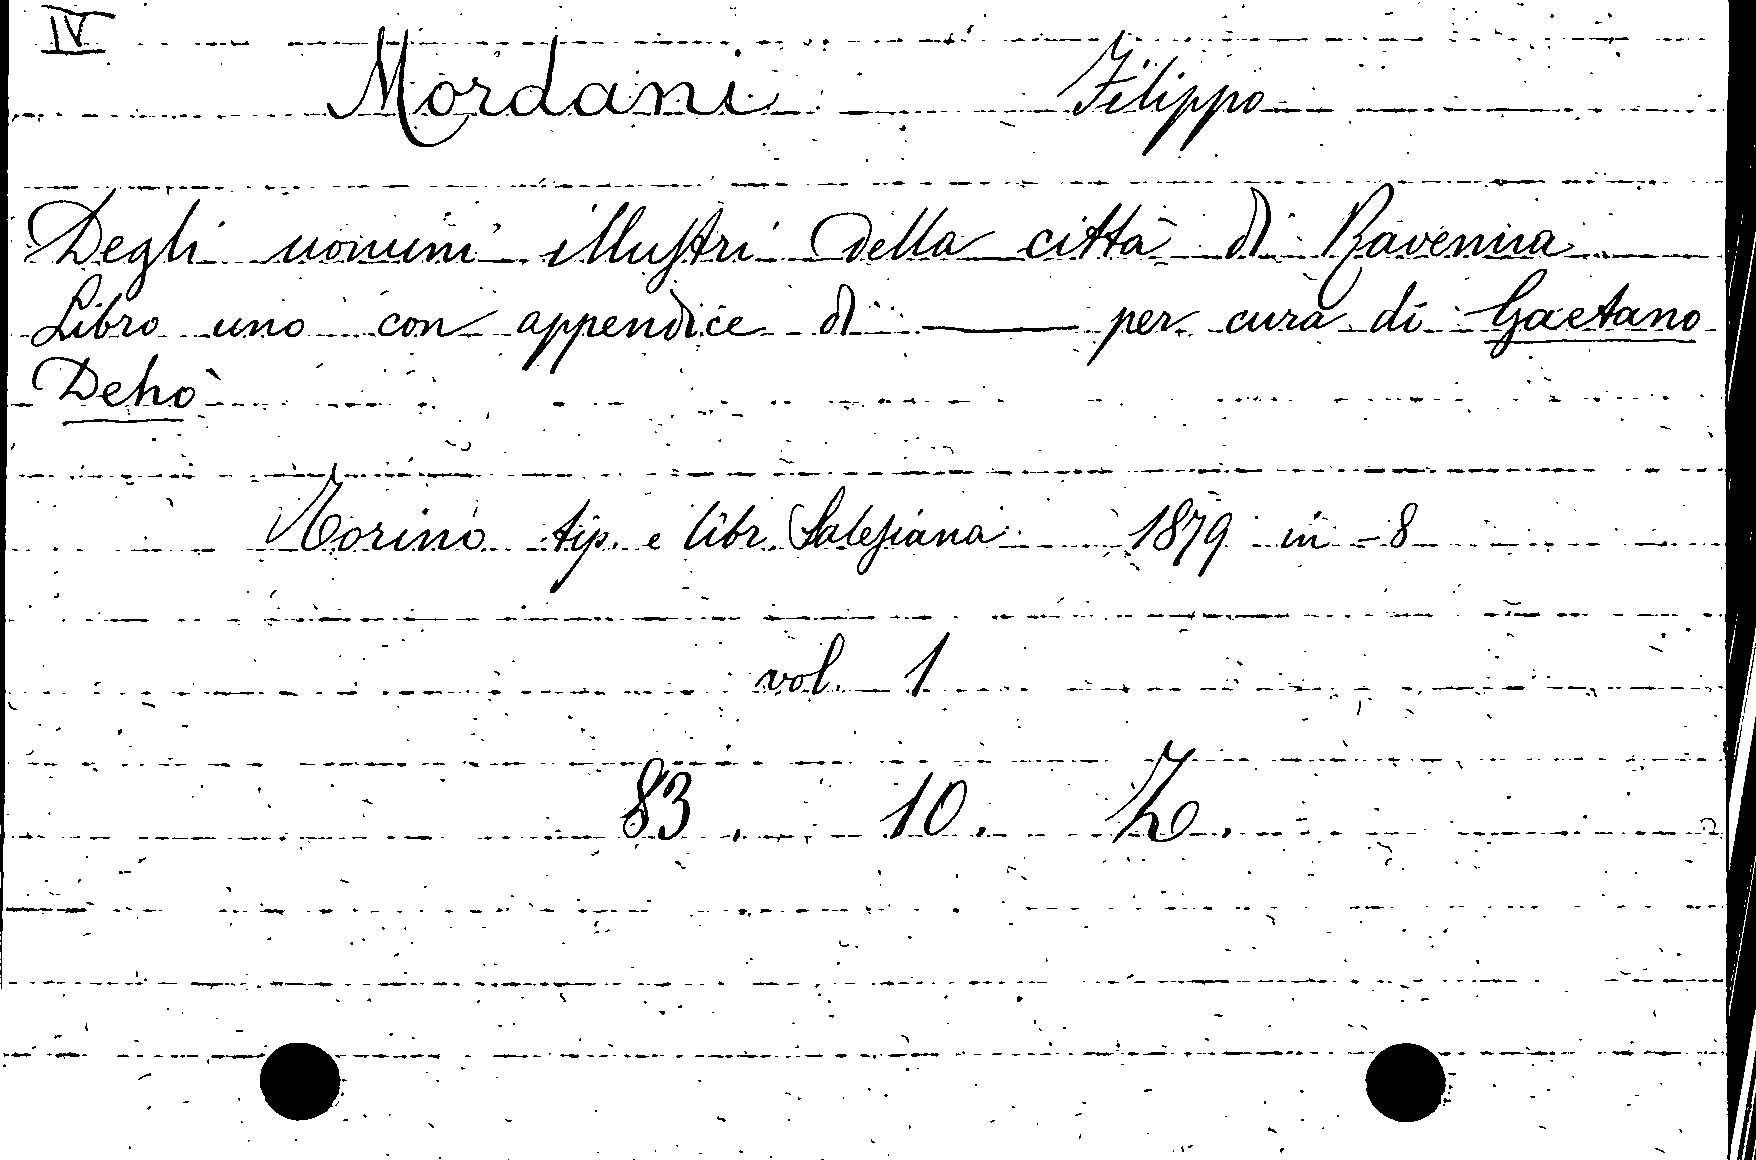 IV
Mordani Filippo
Degli uomini illustri della città di Ravenna
Libro uno con appendice di —— per cura di Gaetano
Dehò
Torino tip. e libr. Salesiana 1879 in-8
vol. 1
83. 10. Z.